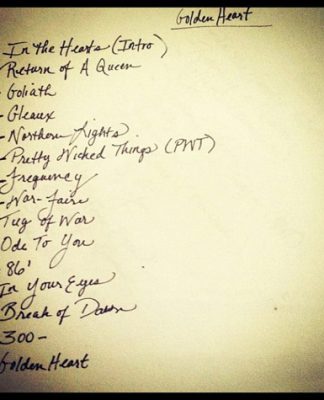 Golden Heart
- In the Hearts (Intro)
Return of A Queen
- Goliath
- Gleaux
- Northern Lights
- Pretty Wicked Things (PWT)
- Frequency
- War-Faire
Tug of War
Ode To You
- 86'
In Your Eyes
Break of Dawn
300 -
Golden Heart